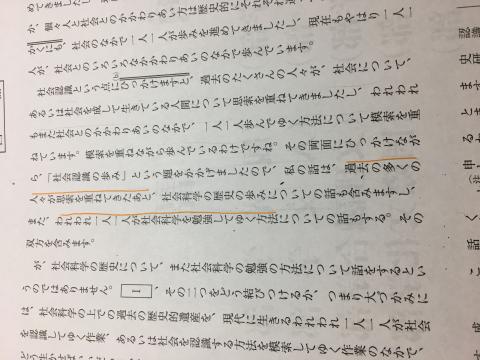 めてきましたし、
が、個々人と社会とのかかわりあい方は歴史的にそれぞれ
にも、社会のなかで一人一人が歩みを進めてきましたし、現在もやはり一人一
人が、社会とのいろいろなかかわりあいのなかで歩んでいます。
社会認識という点にひっかけますと、過去のたくさんの人々が、社会について、
あるいは社会を成して生きている人間について思索を重ねてきましたし、われわれ
もまた社会とのかかわりあいのなかで、一人一人歩んでゆく方法について模索を重
ねています。模索を重ねながら歩んでいるわけですね。その両面にひっかけなが
ら、「社会認識の歩み」という題をかかげましたので、私の話は、過去の多くの
人々が思索を重ねてきたあと、社会科学の歴史の歩みについての話も含みますし、
また、われわれ一人一人が社会科学を勉強してゆく方法についての話もする。その
双方を含みます。
が、社会科学の歴史について、また社会科学の勉強の方法について話をするとい
うのではありません。 I 、その二つをどう結びつけるか、つまり大づかみに
は、社会科学の上での過去の歴史的遺産を、現代に生きるわれわれ一人一人が社会
を認識してゆく作業、あるいは社会を認識する方法を模索してゆく作業のなかで、